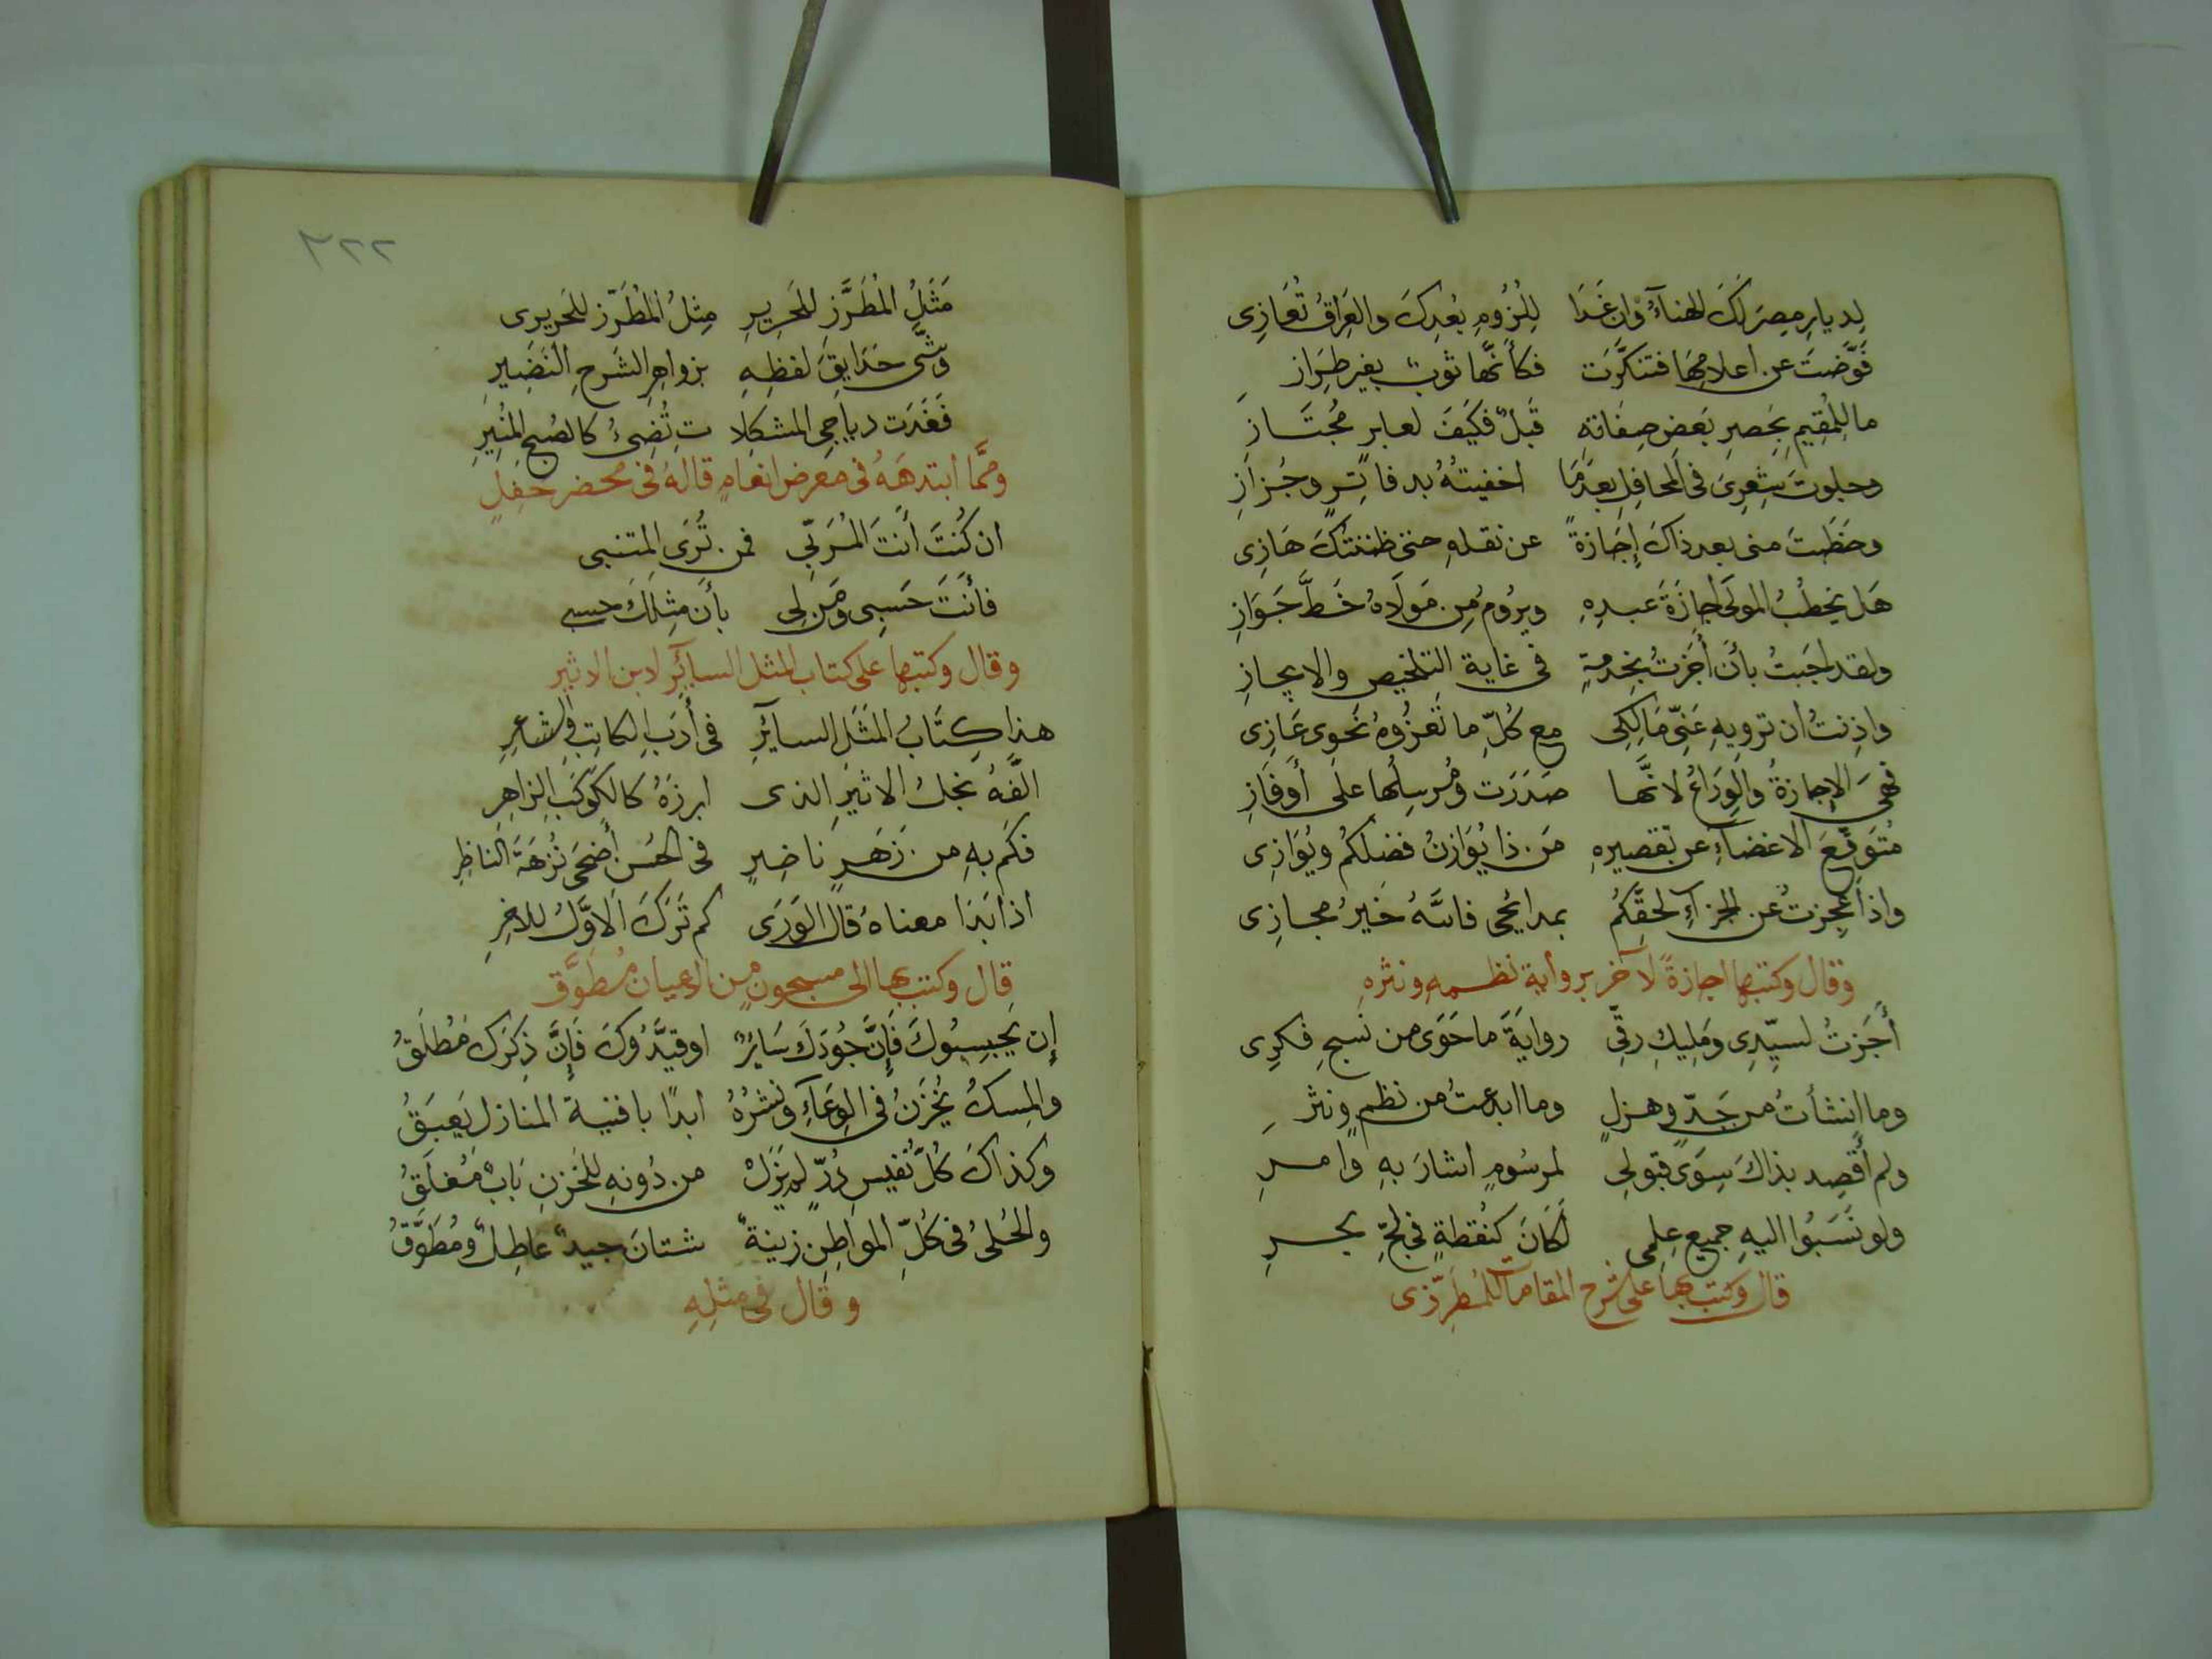 لِديارِ مِصرَ لَكَ الهناءُ وان غَدَا لِلُزُومِ بُعدِكَ والعِراقُ تُعَازِى
قَوَّضتَ عن اعلامِهَا فتنكَّرَت فكأنَّها ثوبٌ بغير طِرَاز
ما لِلمُقِيمِ بِحَصرِ بَعض صِفَاتِهِ قَبلٌ فكَيفَ لعابرٍ مُجتَازِ
وجلوتَ شِعرِىَ فى المحافِلِ بعدَمَا اخفيتُهُ بدفاتِرٍ وجُزازِ
وخطَبتَ منى بعد ذاكَ إِجَازةً عن نقلهِ حتى ظننتكَ هَازِى
هَل يخطُبُ المولَى اجازَةَ عبدِهِ ويرُومُ مِن مَولَاهُ خَطَّ جَوَازِ
ولقد اجَبتُ بأن أَجَزتُ بخِدمةٍ فى غايةِ التلخيصِ والايجازِ
واذِنتُ ان ترويهِ عَنِّى مَالِكِى مع كُلِّ ما تَعزُوهُ نَحوى عَازِى
فهىَ الاِجازةُ والوِدَاعُ لانَّها صَدَرَت ومُرسِلُها على أَوفَازِ
مُتوَقّعَ الاغضاءِ عن تقصيرهِ مَن ذا يُوَازنُ فضلكُم ويُوَازِى
واذا عَجِزتُ عن الجزاءِ لحقِّكُم بمدائحى فاللهُ خَيرُ مجازِى
وقال وكتبها اجازةً لآخر برواية نظمهِ ونثرهِ
أَجَزتُ لسيّدِى ومَلِيكِ رِقّى روايةَ ما حَوَى من نسجِ فكرِى
وما انشأتُ من جَدٍّ وهزلٍ وما ابدعتُ من نظمٍ ونثرِ
ولم أَقصِد بذاكَ سِوَى قبولِى لمرسُومٍ اشارَ بهِ وامرِ
ولو نَسَبُوا اليهِ جميع عِلمِى لَكانَ كنُقطةٍ فى لجِّ بحرِ
قال وكتب بها على شرح المقامات للمُطرِّزى
٣٢٢
مَثَلُ المُطَرَّزِ للحَرِيرِ مِثلُ المُطَرّز للحَريرى
وشّى حَدَايقَ لفظِهِ بزواهِرِ الشَرحِ النَضِيرِ
فَغَدَت دياجى المشكلا تِ تُضِىءُ كالصُبحِ المُنِيرِ
وممَّا ابتدهَهُ فى معرض انعامٍ قالهُ فى محضر حَفِلٍ
ان كُنتَ أَنتَ المُرَبّى فمن تُرَى المتنبى
فأنتَ حَسبِى ومَن لِى بأن مِثلَكَ حسبى
وقال وكتبها على كتاب المثل السائر لابن الاثير
هذا كِتَابُ المَثَلِ السايرِ فى أَدَبِ الكاتِبِ والشاعِرِ
الَّفهُ نجلُ الاثيرِ الذى ابرزَهُ كالكَوكَبِ الزاهِرِ
فكَم بهِ من زَهَرٍ ناضِرٍ فى الحُسنِ أَضحَى نُزهَةَ الناظِرِ
اذا بَدَا معناهُ قال الوَرَى كم تَرَكَ الاوَّلُ للاخِرِ
قال وكتب بها الى مسجون من الاعيان مُطوَّق
إِن يَحبِسُوكَ فَإِنَّ جُودَكَ سَايرٌ او قيَّدُوكَ فَإِنَّ ذِكرَك مُطلَقُ
والمِسكُ يُخزَنُ فى الوِعَاءِ ونَشرُهُ ابدًا بافنية المنازل يَعبَقُ
وكذاكَ كُلُّ نفيسِ دُرٍّ لم يَزَل من دُونهِ للخَزنِ بَابٌ مُغلَقُ
والحُلىُ فى كُلِّ المواطِنِ زينةٌ شتانَ جيدٌ عاطِلٌ ومُطَوَّقُ
وقال فى مثلِهِ